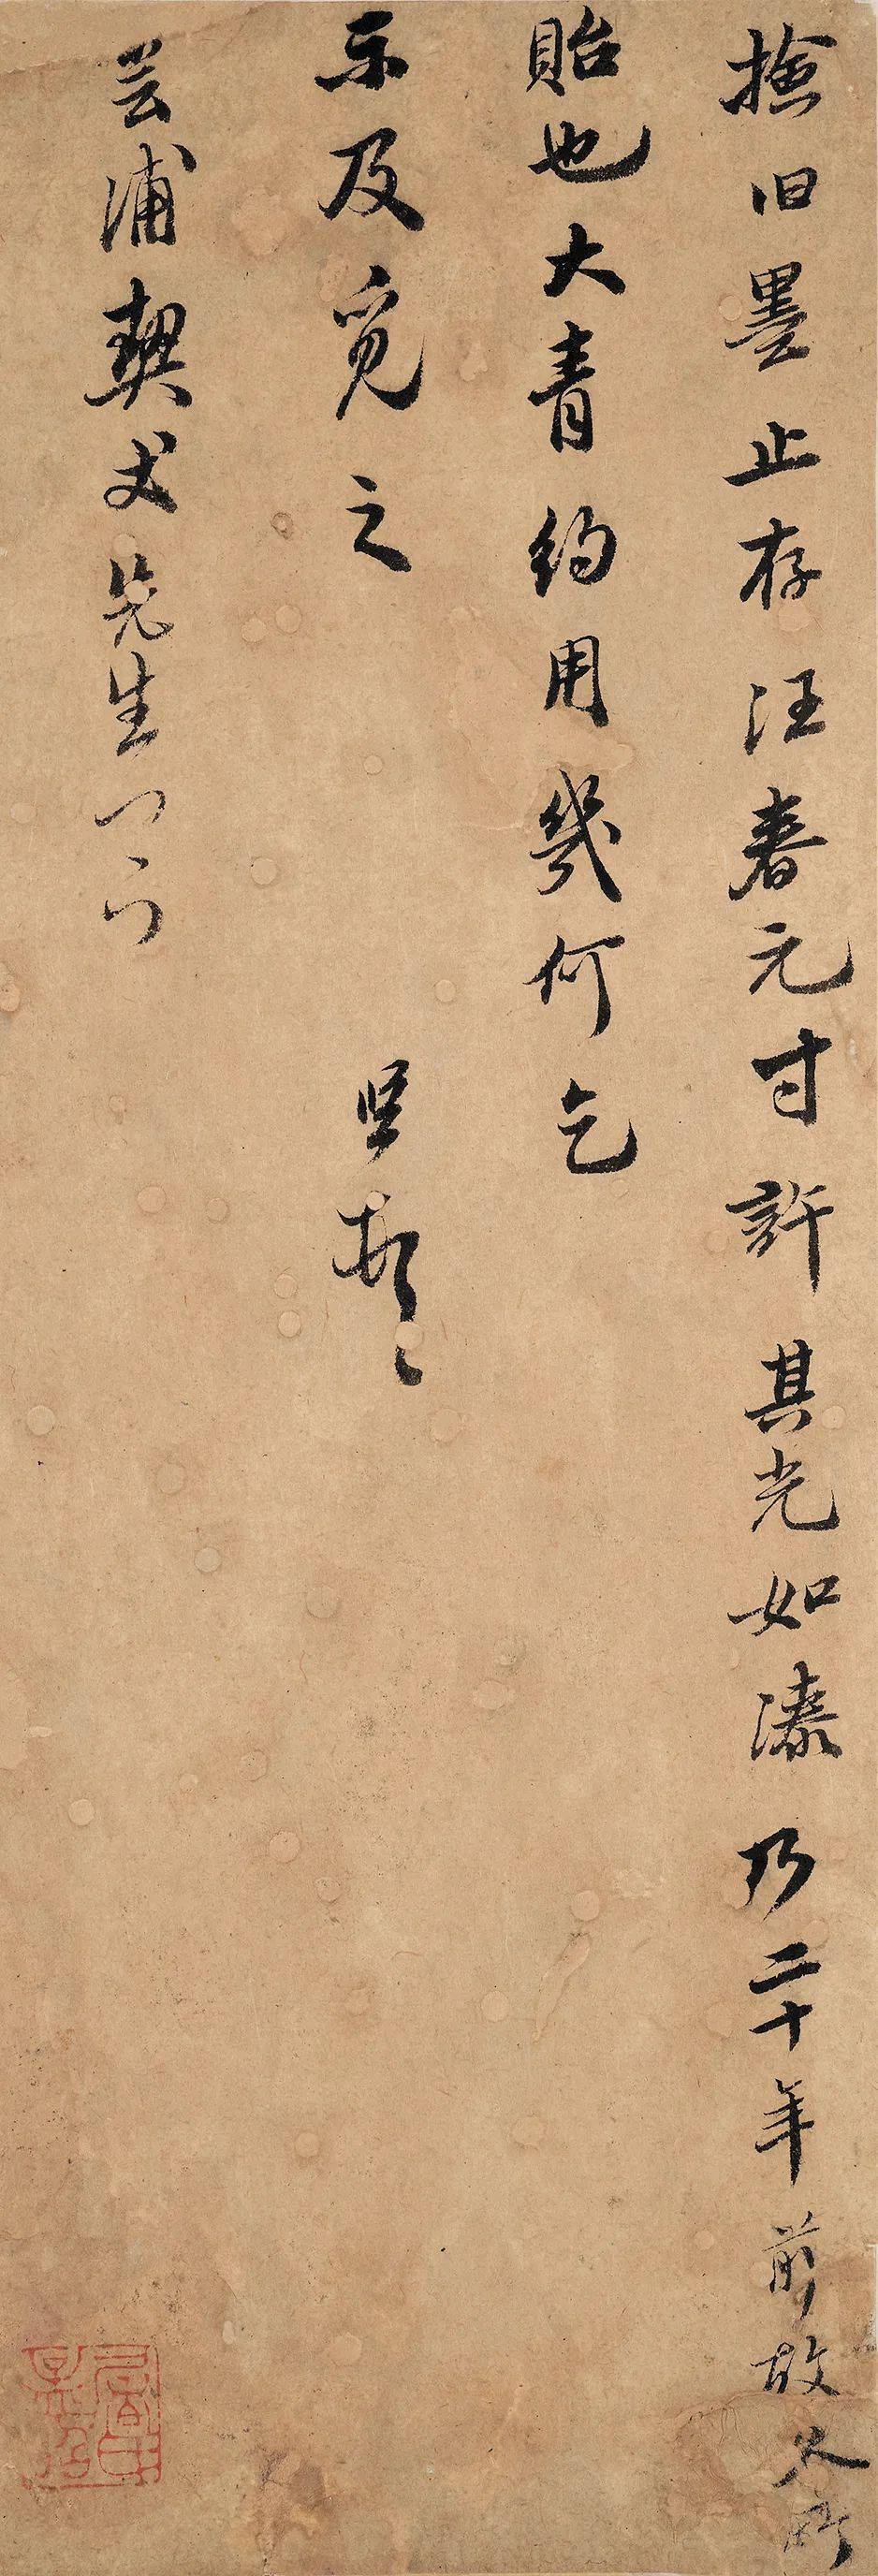 捡旧墨止存汪春元寸許其光如漆乃二十年前故人所
貽也大青約用幾何乞
示及覓之
芸浦契丈先生